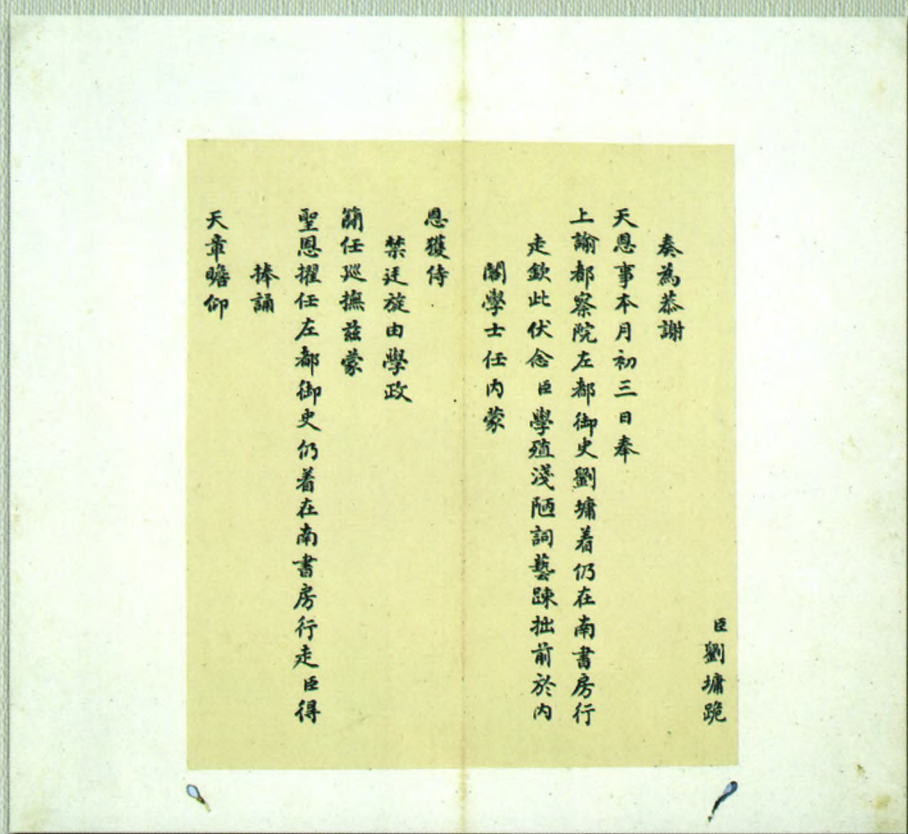 臣劉墉跪
奏為恭謝
天恩事本月初三日奉
上諭都察院左都御史劉墉着仍在南書房行
走欽此伏念臣學殖淺陋詞藝踈拙前於内
閣學士任内蒙
恩獲侍
禁廷旋由學政
簡任廵撫兹蒙
聖恩擢任左都御史仍着在南書房行走臣得
捧誦
天章瞻仰